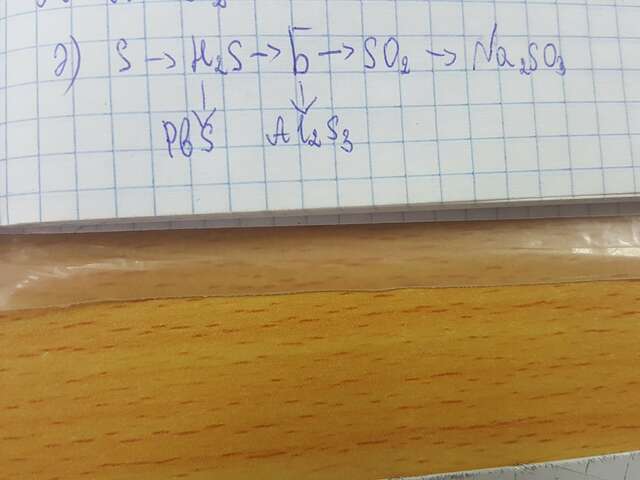 д) S → H₂S → Б → SO₂ → Na₂SO₃
PbS Al₂S₃